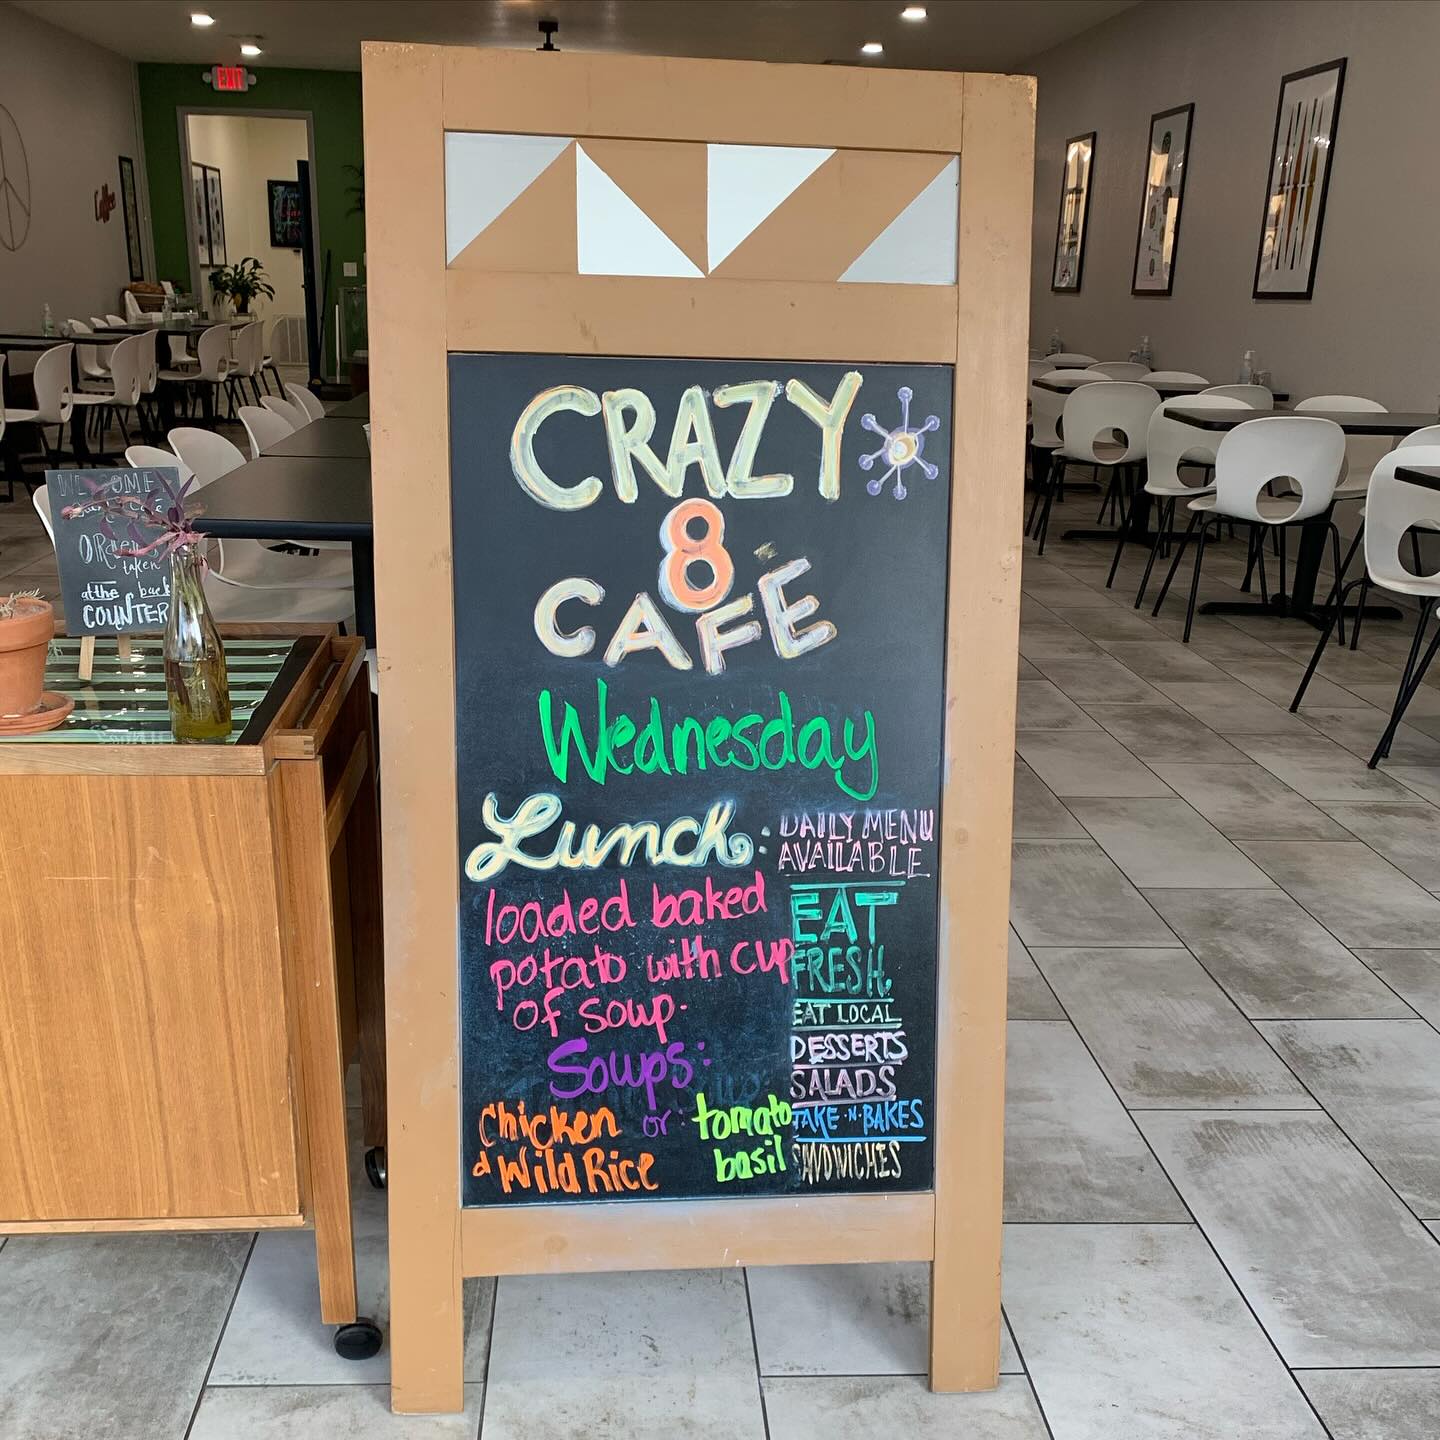 EXIT
Coffee
CRAZY
8
CAFÉ
Wednesday
Lunch:
loaded baked
potato with cup
of soup.
Soups:
Chicken
& Wild Rice
or:
tomato
basil
DAILY MENU
AVAILABLE
EAT
FRESH.
EAT LOCAL
DESSERTS
SALADS
TAKE·N·BAKES
SANDWICHES
WELCOME
Café
ORders
taken
at the back
COUNTER